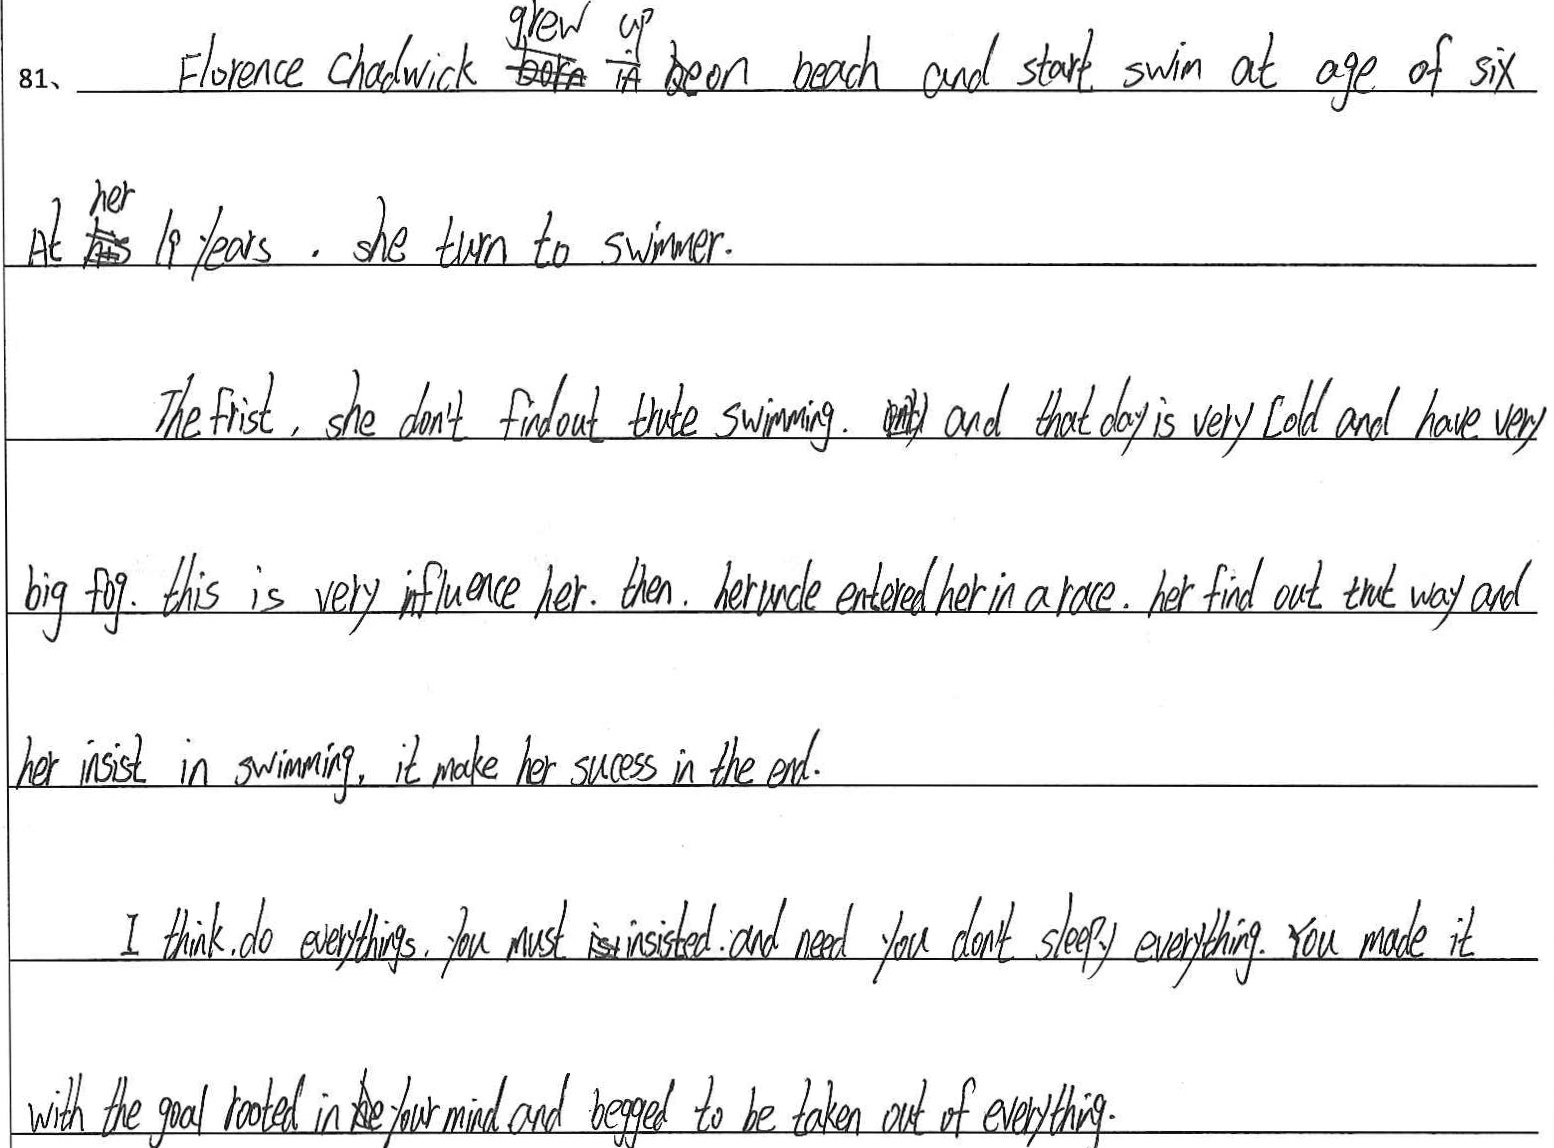 81、 Florence Chadwick grew up on beach and start swim at age of six
At her 19 years . she turn to swimmer.
The frist, she don't findout trute swimming. and that day is very Cold and have very
big fog. this is very influence her. then. her uncle entered her in a race. her find out trut way and
her insist in swimming, it make her sucess in the end.
I think.do everythings. you must insisted.and need you don't sleepy everything. You made it
with the goal rooted in your mind and begged to be taken out of everything.